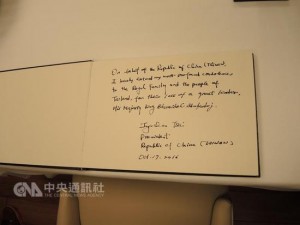 On behalf of the Republic of China (Taiwan),
I hereby extend my most profound condolences
to the Royal Family and the people of
Thailand, for their loss of a great monarch,
His Majesty King Bhumibol Adulyadej.
Ing-wen Tsai
President
Republic of China (Taiwan)
Oct. 17. 2016
CNA 中央通訊社
THE CENTRAL NEWS AGENCY